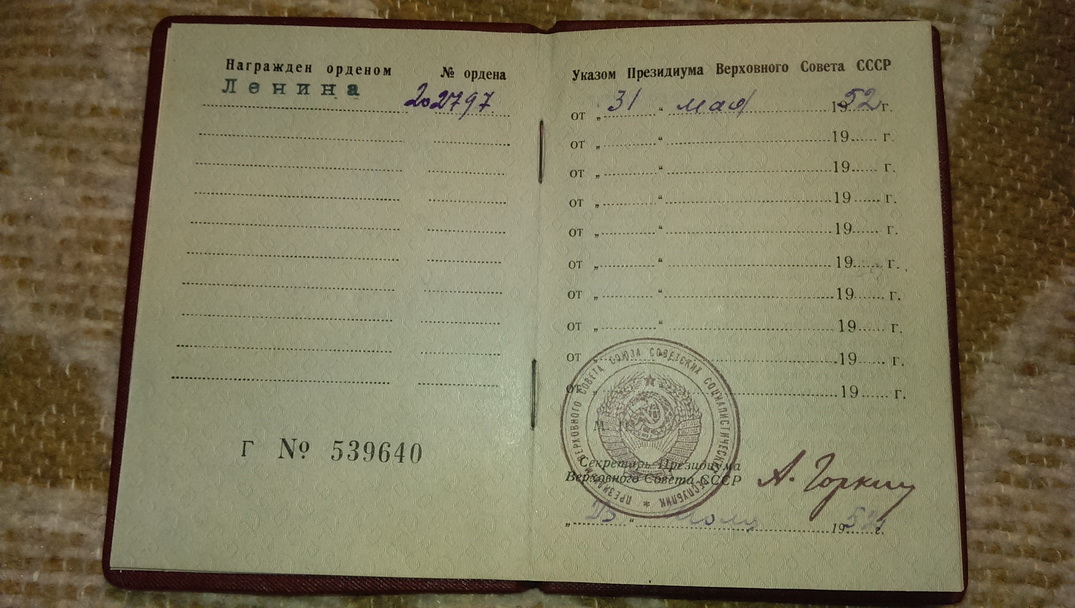 Награжден орденом № ордена
Ленина 202797
Г № 539640
Указом Президиума Верховного Совета СССР
от „ 31 “ мая 1952 г.
от „ “ 19 г.
от „ “ 19 г.
от „ “ 19 г.
от „ “ 19 г.
от „ “ 19 г.
от „ “ 19 г.
от „ “ 19 г.
от „ “ 19 г.
от „ “ 19 г.
ПРЕЗИДИУМ ВЕРХОВНОГО СОВЕТА СОЮЗА СОВЕТСКИХ СОЦИАЛИСТИЧЕСКИХ РЕСПУБЛИК
Секретарь Президиума
Верховного Совета СССР А. Горкин
„ “ 1952 г.